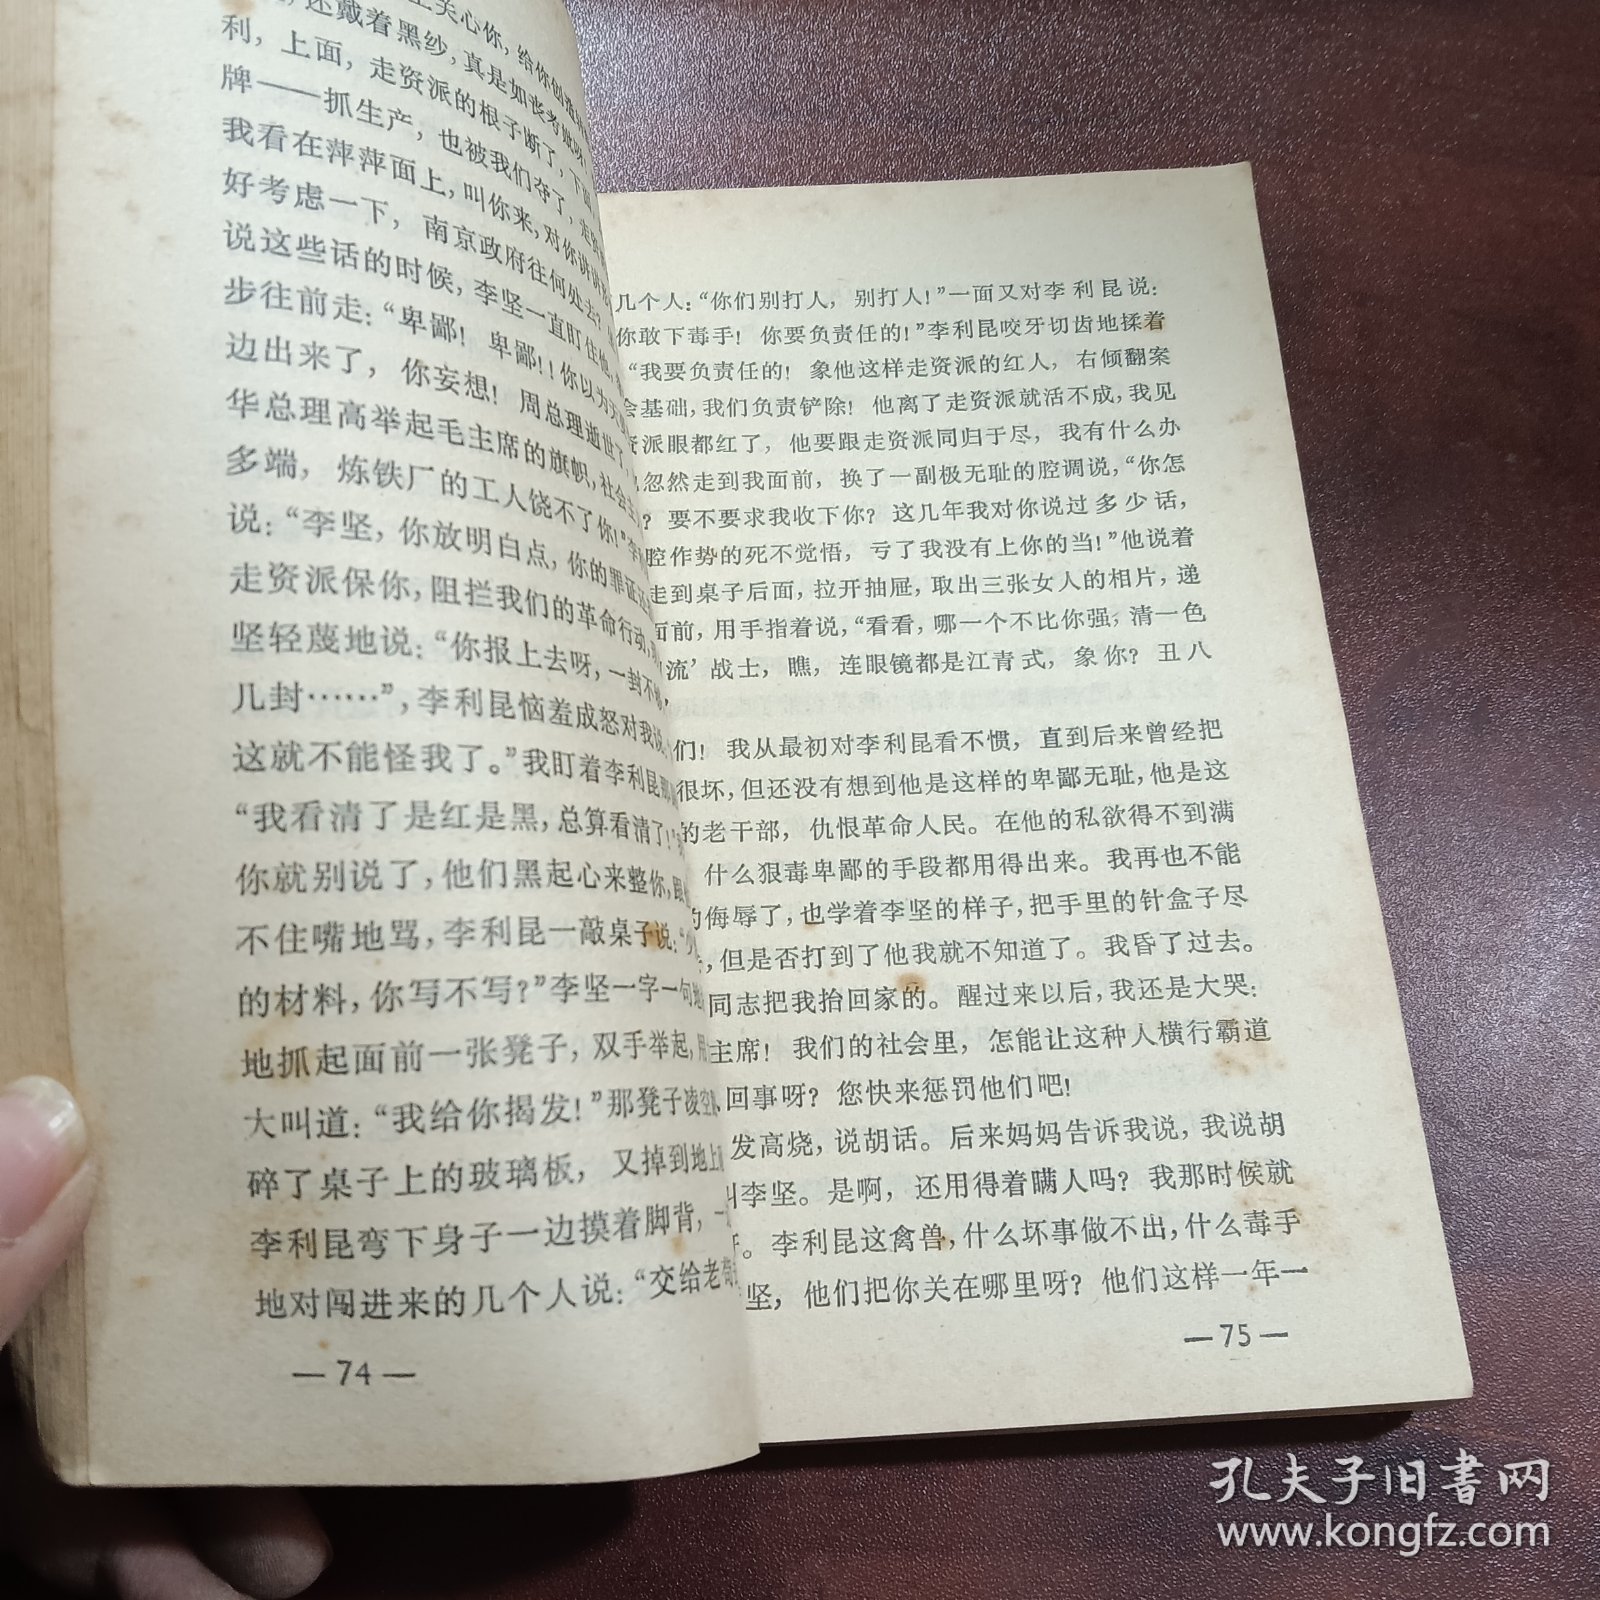 上关心你，给你创造
还戴着黑纱，真是如丧考妣
利，上面，走资派的根子断了，下面
牌——抓生产，也被我们夺了，走资
我看在萍萍面上，叫你来，对你讲讲
好考虑一下，南京政府往何处去？
说这些话的时候，李坚一直盯住他，
步往前走：“卑鄙！卑鄙！！你以为
边出来了，你妄想！周总理逝世了，
华总理高举起毛主席的旗帜，社会
多端，炼铁厂的工人饶不了你！”李
说：“李坚，你放明白点，你的罪证
走资派保你，阻拦我们的革命行动，
坚轻蔑地说：“你报上去呀，一封不
几封……”，李利昆恼羞成怒对我说
这就不能怪我了。”我盯着李利昆
“我看清了是红是黑，总算看清了！”
你就别说了，他们黑起心来整你，跟
不住嘴地骂，李利昆一敲桌子说：“少
的材料，你写不写？”李坚一字一句地
地抓起面前一张凳子，双手举起，用
大叫道：“我给你揭发！”那凳子凌空
碎了桌子上的玻璃板，又掉到地上
李利昆弯下身子一边摸着脚背，一
地对闯进来的几个人说：“交给老
—74—
几个人：“你们别打人，别打人！”一面又对李利昆说：
你敢下毒手！你要负责任的！”李利昆咬牙切齿地揉着
“我要负责任的！象他这样走资派的红人，右倾翻案
会基础，我们负责铲除！他离了走资派就活不成，我见
资派眼都红了，他要跟走资派同归于尽，我有什么办
忽然走到我面前，换了一副极无耻的腔调说，“你怎
？要不要求我收下你？这几年我对你说过多少话，
腔作势的死不觉悟，亏了我没有上你的当！”他说着
走到桌子后面，拉开抽屉，取出三张女人的相片，递
面前，用手指着说，“看看，哪一个不比你强；清一色
流’战士，瞧，连眼镜都是江青式，象你？丑八
们！我从最初对李利昆看不惯，直到后来曾经把
很坏，但还没有想到他是这样的卑鄙无耻，他是这
的老干部，仇恨革命人民。在他的私欲得不到满
什么狠毒卑鄙的手段都用得出来。我再也不能
的侮辱了，也学着李坚的样子，把手里的针盒子尽
，但是否打到了他我就不知道了。我昏了过去。
同志把我抬回家的。醒过来以后，我还是大哭：
主席！我们的社会里，怎能让这种人横行霸道
回事呀？您快来惩罚他们吧！
发高烧，说胡话。后来妈妈告诉我说，我说胡
叫李坚。是啊，还用得着瞒人吗？我那时候就
。李利昆这禽兽，什么坏事做不出，什么毒手
坚，他们把你关在哪里呀？他们这样一年一
—75—
孔夫子旧书网
www.kongfz.com